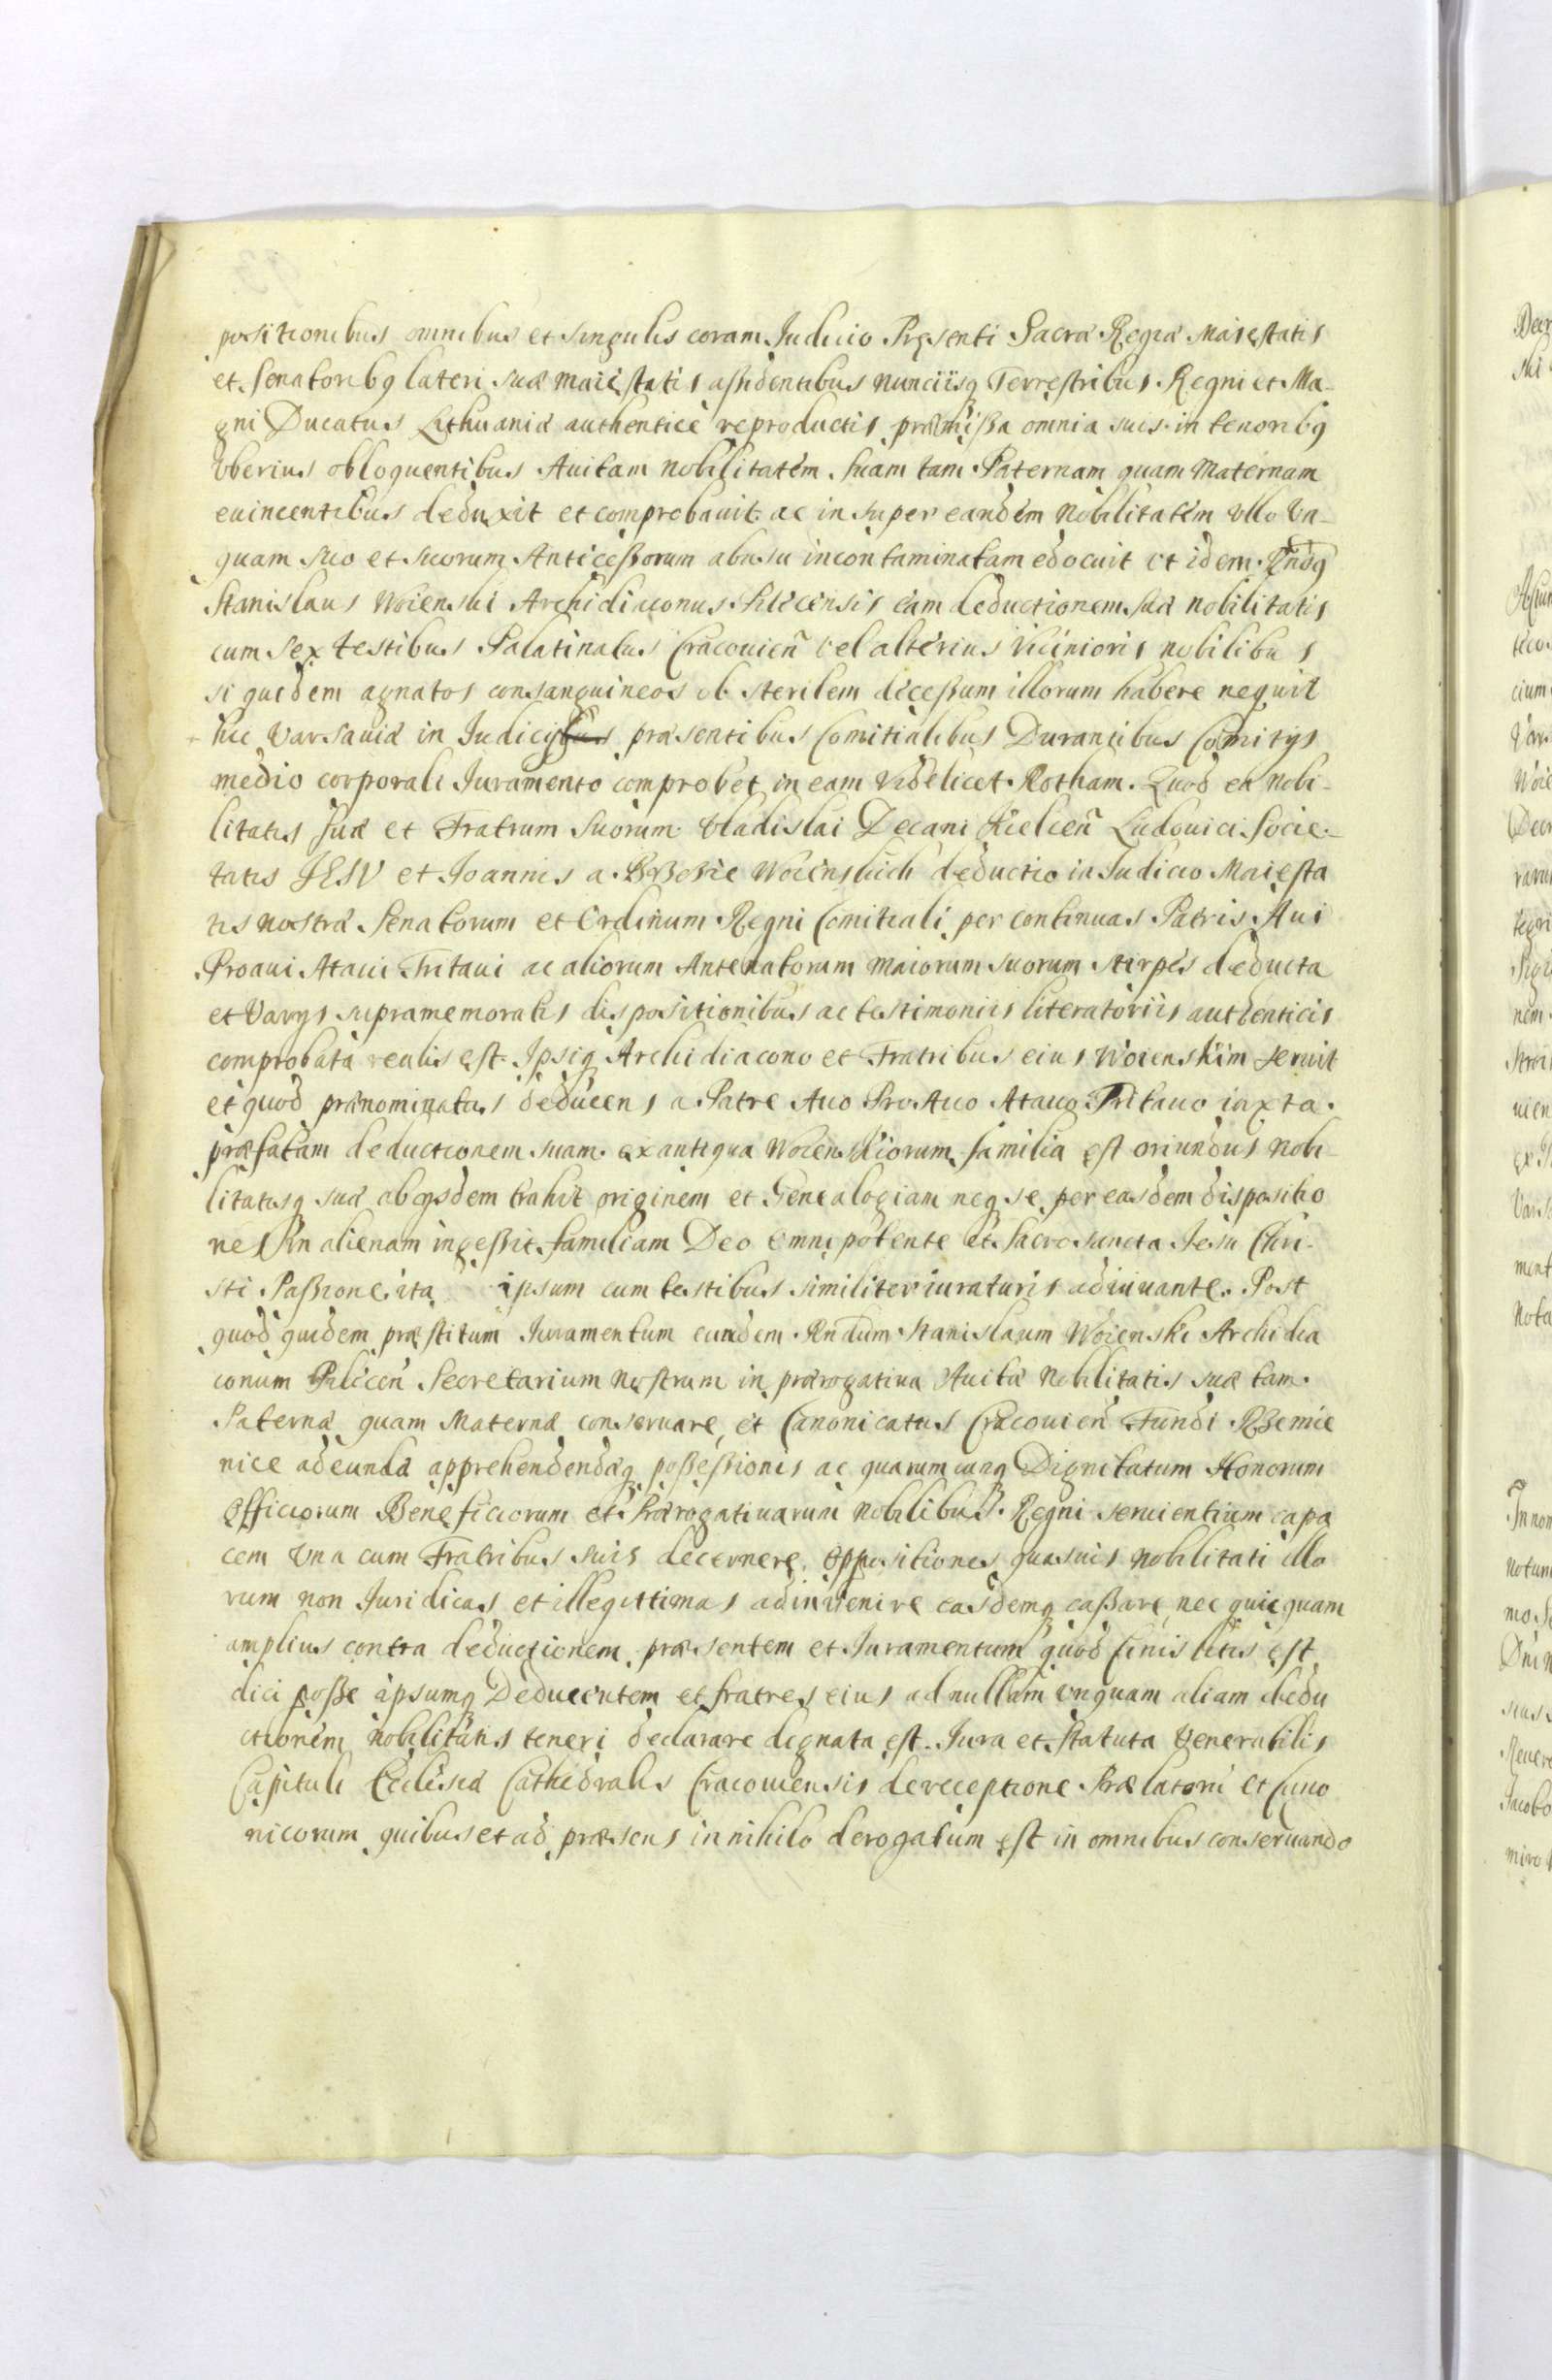 positionibus omnibus et singulis coram Judicio Presenti Sacræ Regiæ Maiestatis
et Senatoribq lateri suæ Maiestatis assidentibus Nunciisq Terrestribus Regni et Ma-
gni Ducatus Lithuaniæ authenticè reproductis præmissa omnia suis in tenoribq
Vberius obloquentibus Auitam Nobilitatem suam tam Paternam quam Maternam
euincentibus deduxit et comprobauit ac in super eandem Nobilitatem Vllo Vn-
quam suo et suorum Anticessorum abusu incontaminatam edocuit Vt idem Rndq
Stanislaus Woienski Archidiaconus Pilicensis eam deductionem suæ Nobilitatis
cum sex testibus Palatinatus Cracouien vel alterius Vicinioris nobilibus
si quidem agnatos consanguineos ob sterilem dicessum illorum habere nequit
hic Varsauiæ in Judicijs præsentibus Comitialibus Durantibus Comitijs
medio corporali Juramento comprobet in eam Videlicet Rotham. Quod ea Nobi-
litatis suæ et Fratrum Suorum Vladislai Decani Kielien Ludouici Socie-
tatis JESV et Joannis a Woienskich deductio in Judicio Maiesta
tis nostræ Senatorum et Ordinum Regni Comitiali per continuas Patris Aui
Proaui Ataui Tritaui ac aliorum Antenatorum Maiorum suorum stirpes deducta
et Varijs supramemoratis dispositionibus ac testimoniis literatoriis authenticis
comprobata realis est Ipsiq Archidiacono et Fratribus eius Woienskim seruit
et quod prænominatus deducens a Patre Auo ProAuo Atauo Tritauo iuxta
præfatam deductionem suam ex antiqua Woienskiorum familia est oriundus Nobi-
litatisq suæ ab ijsdem trahit originem et Genealogiam neq se per easdem dispositio
nes In alienam ingessit familiam Deo Omnipotente et Sacrosancta Jesu Chri-
sti Passione ita ipsum cum testibus similiter iuraturis adiuuante. Post
quod quidem præstitum Juramentum eundem Rndum Stanislaum Woienski Archidia
conum Pilicen Secretarium Nostrum in prærogatiua Auitæ Nobilitatis suæ tam
Paternæ quam Maternæ conseruare, et Canonicatus Cracouien Fundi Rzemie
nice adeundæ apprehendendæq possessionis ac quarumcunq Dignitatum Honorum
Officiorum Beneficiorum et Prærogatiuarum Nobilibus Regni seruientium capa
cem Vna cum Fratribus suis decernere. Oppositiones quasuis Nobilitati illo
rum non Juridicas et illegittimas adinuenire easdemq cassare nec quicquam
amplius contra deductionem præsentem et Juramentum quod finis litis est
dici posse ipsumq Deducentem et fratres eius ad nullam vnquam aliam dedu
ctionem Nobilitatis teneri declarare dignata est. Jura et Statuta Venerabilis
Capituli Ecclesiæ Cathedralis Cracouiensis de receptione Prælatorū et Cano
nicorum quibus et ad præsens in nihilo derogatum est in omnibus conseruando